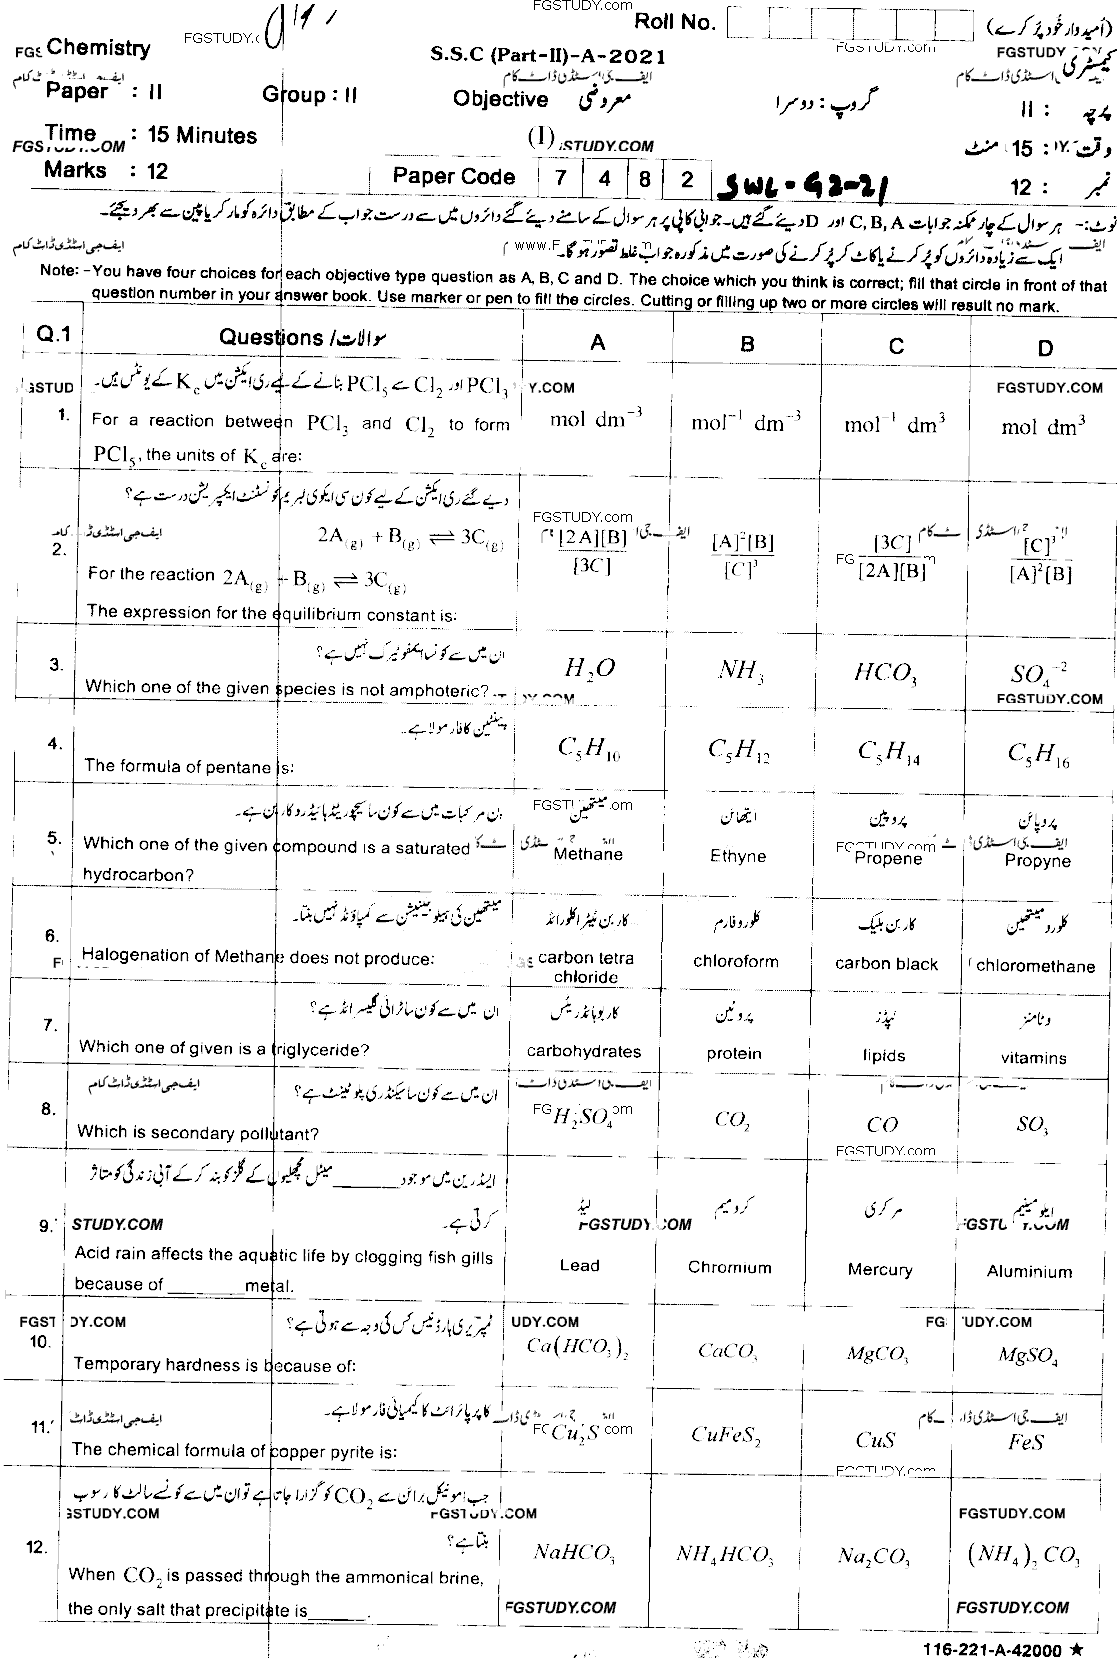 FGSTUDY.COM
Roll No. (اُمیدوار خُود پُر کرے)
Chemistry S.S.C (Part-II)-A-2021 کیمسٹری
FGSTUDY.com
ایف جی اسٹڈی ڈاٹ کام
Paper : II Group : II Objective معروضی گروپ : دوسرا پرچہ : II
Time : 15 Minutes (I) وقت : 15 منٹ
FGSTUDY.COM
Marks : 12 Paper Code 7 4 8 2 SWL-G2-21 نمبر : 12
نوٹ:- ہر سوال کے چار ممکنہ جوابات C, B, A اور D دیئے گئے ہیں۔ جوابی کاپی پر ہر سوال کے سامنے دیئے گئے دائروں میں سے درست جواب کے مطابق دائرہ کو مارکر یا پین سے بھر دیجئے۔
ایک سے زیادہ دائروں کو پُر کرنے یا کاٹ کر پُر کرنے کی صورت میں مذکورہ جواب غلط تصوّر ہوگا۔
Note: -You have four choices for each objective type question as A, B, C and D. The choice which you think is correct; fill that circle in front of that
question number in your answer book. Use marker or pen to fill the circles. Cutting or filling up two or more circles will result no mark.
Q.1 Questions / سوالات A B C D
PCl₃ اور Cl₂ سے PCl₅ بنانے کے لیے ری ایکشن میں K꜀ کے یونٹس ہیں۔
1. For a reaction between PCl₃ and Cl₂ to form mol dm⁻³ mol⁻¹ dm⁻³ mol⁻¹ dm³ mol dm³
PCl₅, the units of K꜀ are:
دیے گئے ری ایکشن کے لیے کون سی ایکوی لبریم کونسٹنٹ ایکسپریشن درست ہے؟
2. 2A(g) + B(g) ⇌ 3C(g) [2A][B]/[3C] [A]²[B]/[C]³ [3C]/[2A][B] [C]³/[A]²[B]
For the reaction 2A(g) + B(g) ⇌ 3C(g)
The expression for the equilibrium constant is:
ان میں سے کونسا ایمفوٹیرک نہیں ہے؟
3. Which one of the given species is not amphoteric? H₂O NH₃ HCO₃ SO₄⁻²
پینٹین کا فارمولا ہے۔
4. The formula of pentane is: C₅H₁₀ C₅H₁₂ C₅H₁₄ C₅H₁₆
ان مرکبات میں سے کون سا سیچوریٹڈ ہائیڈروکاربن ہے۔ میتھین ایتھائن پروپین پروپائن
5. Which one of the given compound is a saturated Methane Ethyne Propene Propyne
hydrocarbon?
میتھین کی ہیلوجینیشن سے کمپاؤنڈ نہیں بنتا۔ کاربن ٹیٹرا کلورائڈ کلوروفارم کاربن بلیک کلورو میتھین
6. Halogenation of Methane does not produce: carbon tetra chloride chloroform carbon black chloromethane
ان میں سے کون سا ٹرائی گلیسرائڈ ہے؟ کاربوہائڈریٹس پروٹین لپڈز وٹامنز
7. Which one of given is a triglyceride? carbohydrates protein lipids vitamins
ان میں سے کون سا سیکنڈری پلوٹینٹ ہے؟
8. Which is secondary pollutant? H₂SO₄ CO₂ CO SO₃
ایسڈ رین میں موجود ______ میٹل مچھلیوں کے گلز کو بند کر کے آبی زندگی کو متاثر
کرتی ہے۔ لیڈ کرومیم مرکری ایلومینیم
9. Acid rain affects the aquatic life by clogging fish gills Lead Chromium Mercury Aluminium
because of ________ metal.
ٹمپریری ہارڈنیس کس کی وجہ سے ہوتی ہے؟
10. Temporary hardness is because of: Ca(HCO₃)₂ CaCO₃ MgCO₃ MgSO₄
کاپر پائرائٹ کا کیمیائی فارمولا ہے۔
11. The chemical formula of copper pyrite is: Cu₂S CuFeS₂ CuS FeS
جب امونیکل برائن سے CO₂ کو گزارا جاتا ہے تو ان میں سے کونسے سالٹ کا رسوب
بنتا ہے؟
12. When CO₂ is passed through the ammonical brine, NaHCO₃ NH₄HCO₃ Na₂CO₃ (NH₄)₂CO₃
the only salt that precipitate is______.
FGSTUDY.COM FGSTUDY.COM
116-221-A-42000 ★